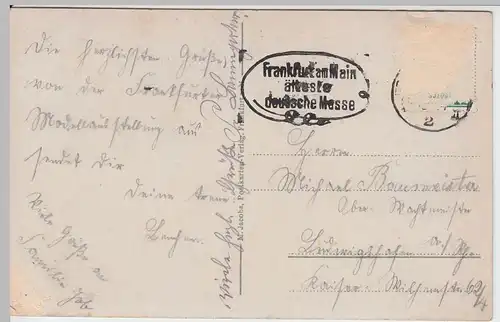 Die herzlichsten Grüße
von der Frankfurter
Modellausstellung aus
sendet Dir
Deine treue
Viele Grüße an
Familie
Viele herzl. Grüße
M. Jacobs, Postkarten-Verlag, Frankfurt
Frankfurt am Main
älteste
deutsche Messe
2
Herrn
Michael Baumeister
Ober-Wachtmeister
Ludwigshafen a/Rh.
Kaiser-Wilhelmstr 62/4